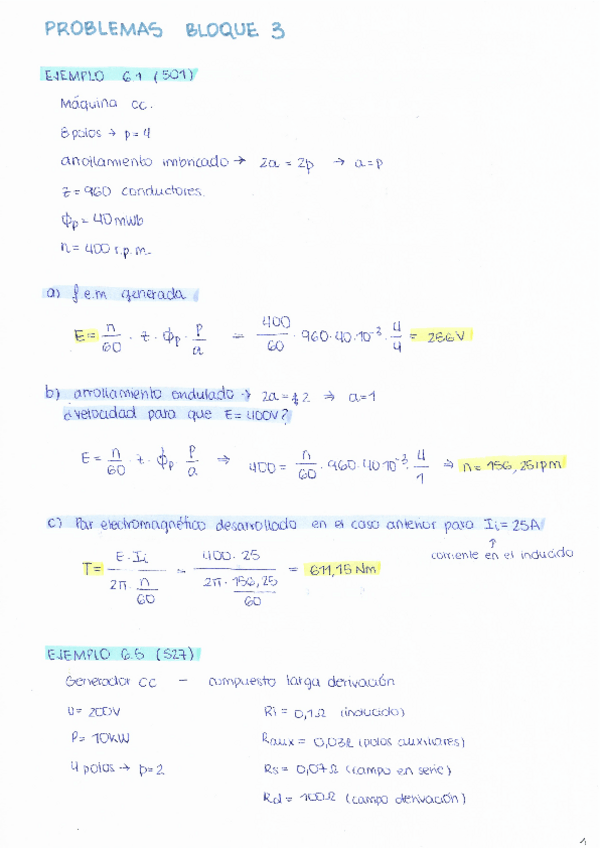 PROBLEMAS BLOQUE 3
EJEMPLO 6.1 (501)
Máquina cc.
8 polos → p = 4
arrollamiento imbricado → 2a = 2p → a = p
z = 960 conductores.
ϕp = 40 mWb
n = 400 r.p.m.
a) f.e.m generada
E = n/60 · z · ϕp · p/a = 400/60 · 960 · 40 · 10⁻³ · 4/4 = 256 V
b) arrollamiento ondulado → 2a = 2 ⇒ a = 1
¿velocidad para que E = 400V?
E = n/60 · z · ϕp · p/a ⇒ 400 = n/60 · 960 · 40 10⁻³ · 4/1 ⇒ n = 156,25 rpm
c) Par electromagnético desarrollado en el caso anterior para Ii = 25A
↑
corriente en el inducido
T = E · Ii / 2π · n/60 = 400 · 25 / 2π · 156,25/60 = 611,15 Nm
EJEMPLO 6.5 (527)
Generador CC – compuesto larga derivación
U = 200V Ri = 0,1Ω (inducido)
P = 10kW Raux = 0,03Ω (polos auxiliares)
4 polos → p = 2 Rs = 0,07Ω (campo en serie)
Rd = 100Ω (campo derivación)
1